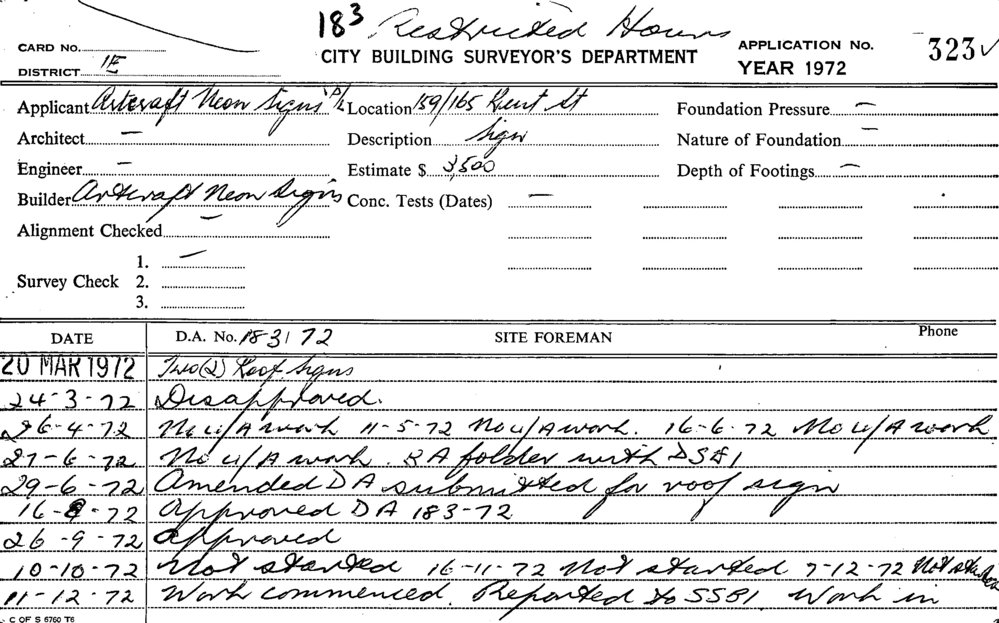 183 Restricted Hours
CARD NO. CITY BUILDING SURVEYOR'S DEPARTMENT APPLICATION No. 323✓
DISTRICT 1E YEAR 1972
Applicant Artcraft Neon Signs P/L Location 159/165 Kent St Foundation Pressure —
Architect — Description Sign Nature of Foundation —
Engineer — Estimate $ 3,500 Depth of Footings —
Builder Artcraft Neon Signs Conc. Tests (Dates) —
Alignment Checked —
1. —
Survey Check 2.
3.
DATE D.A. No. 183/72 SITE FOREMAN Phone
20 MAR 1972 Two (2) Roof Signs
24-3-72 Disapproved.
26-4-72 No u/A work 11-5-72 No u/A work. 16-6-72 No u/A work
27-6-72 No u/A work. BA folder with DSB1
29-6-72 Amended DA submitted for roof sign
16-8-72 Approved DA 183-72
26-9-72 Approved
10-10-72 Not started 16-11-72 Not started 7-12-72 Not started
11-12-72 Work commenced. Reported to SSB1 Work in
C OF S 6760 T6